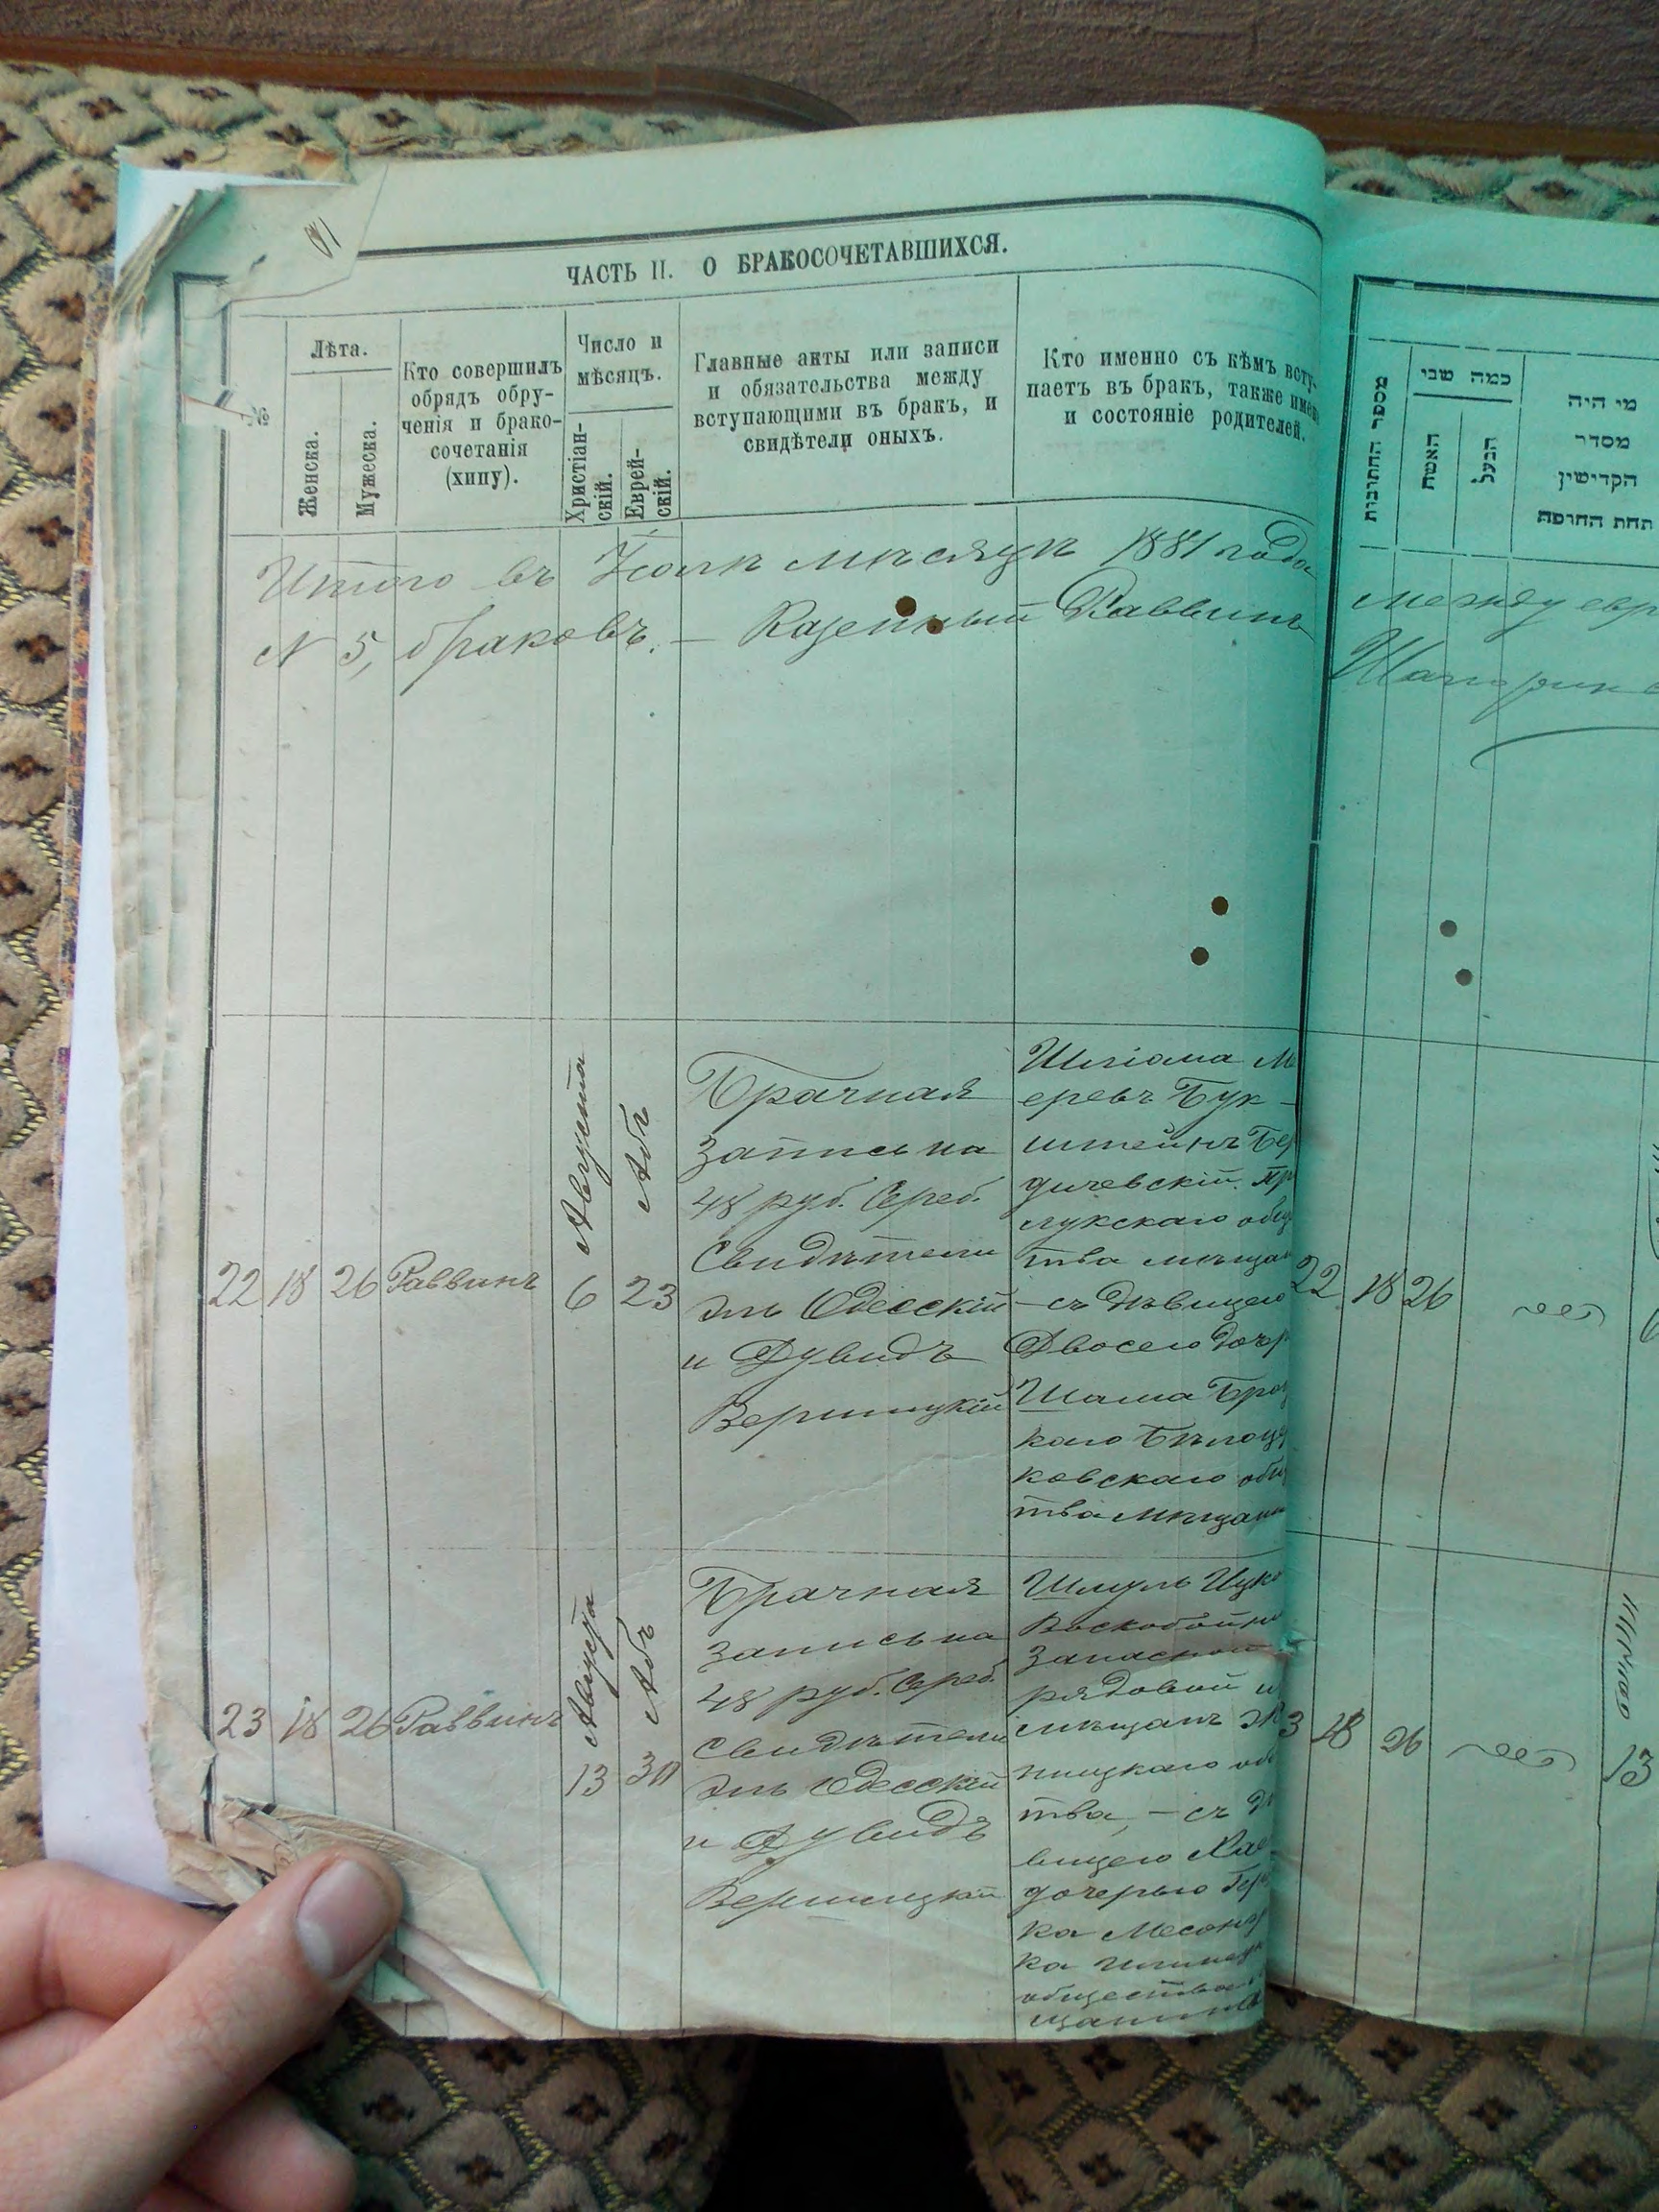 ЧАСТЬ II. О БРАКОСОЧЕТАВШИХСЯ.
№
Лѣта.
Женска.
Мужеска.
Кто совершилъ
обрядъ обру-
ченія и брако-
сочетанія
(хипу).
Число и
мѣсяцъ.
Христіан-
скій.
Еврей-
скій.
Главные акты или записи
и обязательства между
вступающими въ бракъ, и
свидѣтели оныхъ.
Кто именно съ кѣмъ всту-
паетъ въ бракъ, также имена
и состояніе родителей.
Итого въ Іюлѣ мѣсяцѣ 1881 года
№ 5, браковъ. — Казенный Раввинъ
22
18
26
Раввинъ
Августа
6
Абъ
23
Брачная
запись на
48 руб. Сереб.
Свидѣтели
Эль Одесскій
и Дувидъ
Верницкій
Шліома М
еревъ Бук-
штейнъ Бер
дичевскій. Пр
лукскаго общ
тва мѣщан
— съ дѣвицею
Двосею дочер
Шама Брац
каго Бѣлоцер
ковскаго общ
тва мѣщани
23
18
26
Раввинъ
Августа
13
Абъ
30
Брачная
запись на
48 руб. Сереб.
Свидѣтели
Эль Одесскій
и Дувидъ
Верницкій
Шмуль Ицко
Воскобойни
Запасной
рядовой и
мѣщанъ
ницкаго об
тва, — съ дѣ
вицею
дочерью Гер
ка
ка
общества
щанина
מספר החתונות
כמה שני
האשה
הבעל
מי היה
מסדר
הקדישין
תחת החופה
между евр
22
18
26
3
18
26
13